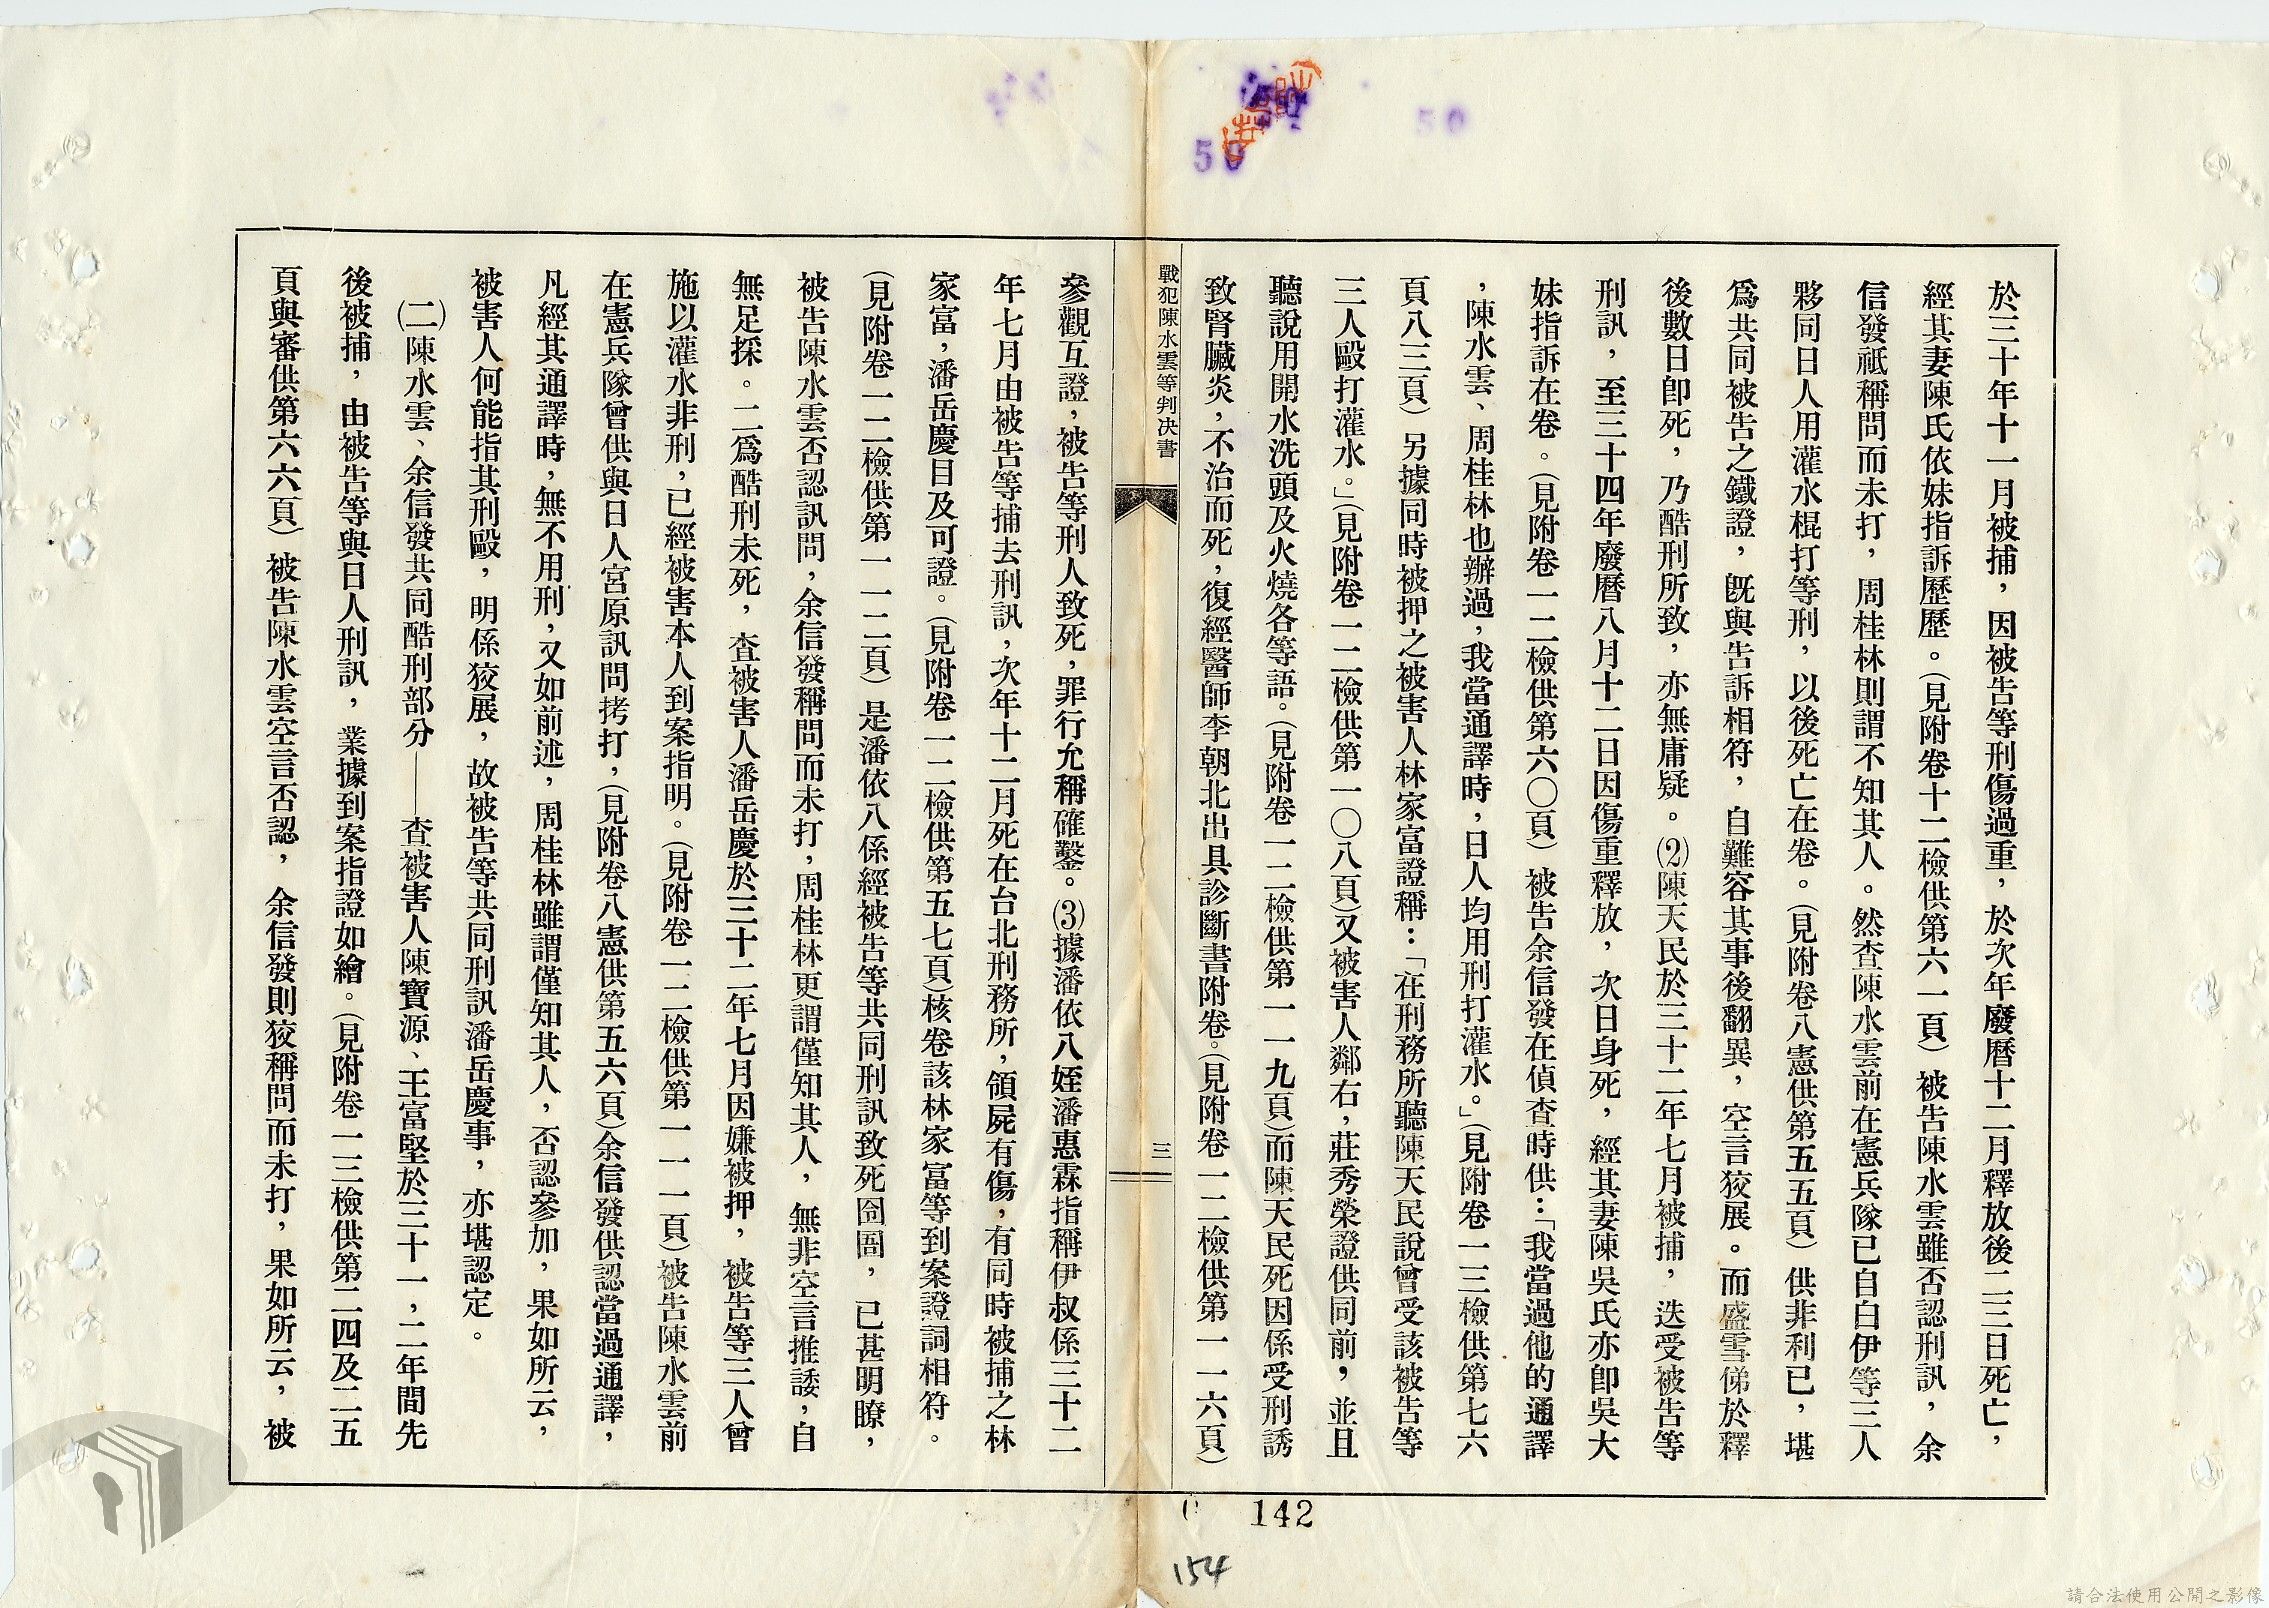 於三十年十一月被捕，因被告等刑傷過重，於次年廢曆十二月釋放後二三日死亡，
經其妻陳氏依妹指訴歷歷。（見附卷十二檢供第六一頁）被告陳水雲雖否認刑訊，余
信發祗稱問而未打，周桂林則謂不知其人。然查陳水雲前在憲兵隊已自白伊等三人
夥同日人用灌水棍打等刑，以後死亡在卷。（見附卷八憲供第五五頁）供非利已，堪
爲共同被告之鐵證，旣與告訴相符，自難容其事後翻異，空言狡展。而盛雪俤於釋
後數日卽死，乃酷刑所致，亦無庸疑。⑵陳天民於三十二年七月被捕，迭受被告等
刑訊，至三十四年廢曆八月十二日因傷重釋放，次日身死，經其妻陳吳氏亦卽吳大
妹指訴在卷。（見附卷一二檢供第六〇頁）被告余信發在偵查時供：「我當過他的通譯
，陳水雲、周桂林也辦過，我當通譯時，日人均用刑打灌水。」（見附卷一三檢供第七六
頁八三頁）另據同時被押之被害人林家富證稱：「在刑務所聽陳天民說曾受該被告等
三人毆打灌水。」（見附卷一二檢供第一〇八頁）又被害人鄰右，莊秀榮證供同前，並且
聽說用開水洗頭及火燒各等語。（見附卷一二檢供第一一九頁）而陳天民死因係受刑誘
致腎臟炎，不治而死，復經醫師李朝北出具診斷書附卷。（見附卷一二檢供第一一六頁）
戰犯陳水雲等判決書
三
參觀互證，被告等刑人致死，罪行允稱確鑿。⑶據潘依八姪潘惠霖指稱伊叔係三十二
年七月由被告等捕去刑訊，次年十二月死在台北刑務所，領屍有傷，有同時被捕之林
家富，潘岳慶目及可證。（見附卷一二檢供第五七頁）核卷該林家富等到案證詞相符。
（見附卷一二檢供第一一二頁）是潘依八係經被告等共同刑訊致死囹圄，已甚明瞭，
被告陳水雲否認訊問，余信發稱問而未打，周桂林更謂僅知其人，無非空言推諉，自
無足採。二爲酷刑未死，查被害人潘岳慶於三十二年七月因嫌被押，被告等三人曾
施以灌水非刑，已經被害本人到案指明。（見附卷一二檢供第一一一頁）被告陳水雲前
在憲兵隊曾供與日人宮原訊問拷打，（見附卷八憲供第五六頁）余信發供認當過通譯，
凡經其通譯時，無不用刑，又如前述，周桂林雖謂僅知其人，否認參加，果如所云，
被害人何能指其刑毆，明係狡展，故被告等共同刑訊潘岳慶事，亦堪認定。
㈡陳水雲、余信發共同酷刑部分——查被害人陳寶源、王富堅於三十一，二年間先
後被捕，由被告等與日人刑訊，業據到案指證如繪。（見附卷一三檢供第二四及二五
頁與審供第六六頁）被告陳水雲空言否認，余信發則狡稱問而未打，果如所云，被
50
50
142
154
請合法使用公開之影像